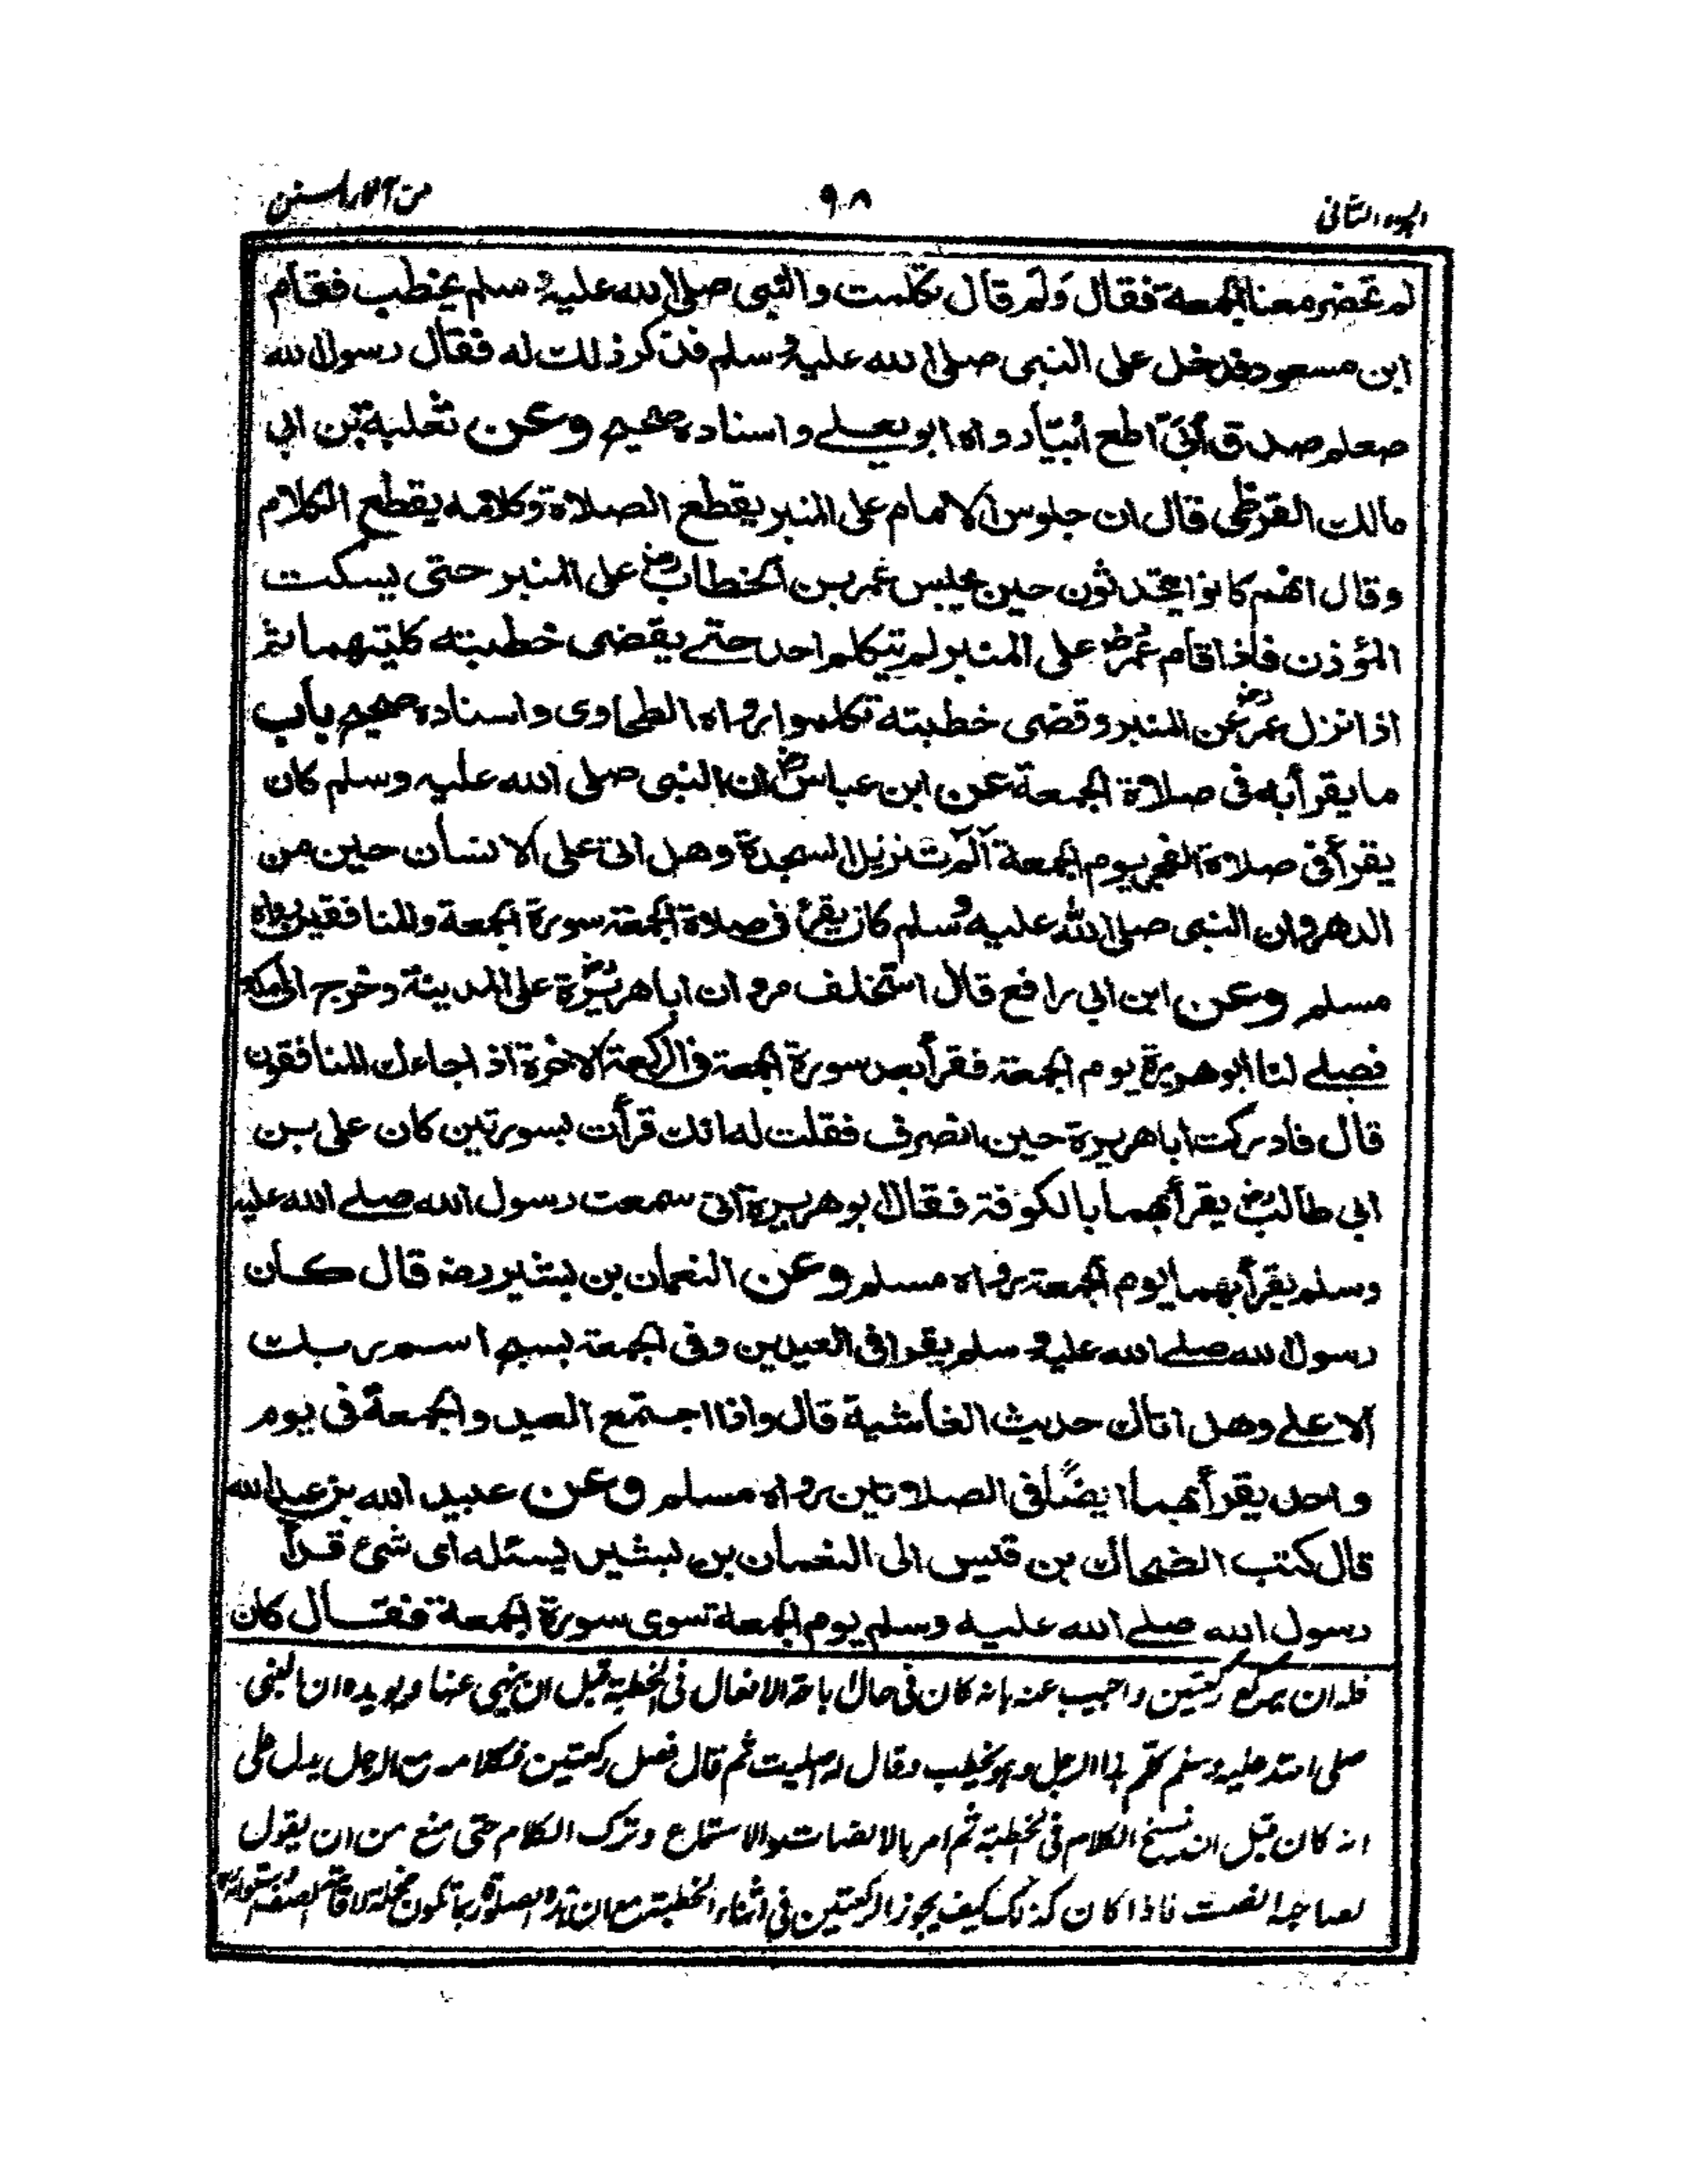 الجزء الثانى
٩٨
من آثار السنن
لم تحضر معنا الجمعة فقال وَلم قال تكلمت والنبى صلى الله عليه وسلم يخطب فقام
ابن مسعود فدخل على النبى صلى الله عليه وسلم فذكر ذلك له فقال رسول الله
صعلم صدق أُبَىّ اطع أُبيّا رواه ابو يعلے واسناده صحيح وعن ثعلبة بن ابى
مالك القرظى قال ان جلوس الامام على المنبر يقطع الصلاة وكلامه يقطع الكلام
وقال انهم كانوا يتحدثون حين يجلس عمر بن الخطاب رض على المنبر حتى يسكت
المؤذن فاذا قام عمر رض على المنبر لم يتكلم احد حتے يقضى خطبته كليتهما ثم
اذا نزل عمر رض عن المنبر وقضى خطبته تكلموا رواه الطحاوى واسناده صحيح باب
ما يقرأ به فى صلاة الجمعة عن ابن عباس رض ان النبى صلى الله عليه وسلم كان
يقرأ فى صلاة الفجر يوم الجمعة آلٓمٓ تنزيل السجدة وهل اتى على الانسان حين من
الدهر وان النبى صلى الله عليه وسلم كان يقرأ فى صلاة الجمعة سورة الجمعة والمنافقين رواه
مسلم وعن ابن ابى رافع قال استخلف مروان ابا هريرة رض على المدينة وخرج الى مكة
فصلے لنا ابو هريرة يوم الجمعة فقرأ بعد سورة الجمعة فى الركعة الآخرة اذا جاءك المنافقون
قال فادركت ابا هريرة حين انصرف فقلت له انك قرأت بسورتين كان على بن
ابى طالب رض يقرأ بهما بالكوفة فقال ابو هريرة انى سمعت رسول الله صلے الله عليه
وسلم يقرأ بهما يوم الجمعة رواه مسلم وعن النعمان بن بشير رضه قال كان
رسول الله صلے الله عليه وسلم يقرا فى العيدين وفى الجمعة بسبح اسم ربك
الاعلے وهل اتاك حديث الغاشية قال واذا اجتمع العيد والجمعة فى يوم
واحد يقرأ بهما ايضًا فى الصلاوتين رواه مسلم وعن عبيد الله بن عبد الله
قال كتب الضحاك بن قيس الى النعمان بن بشير يسئله اى شئ قرأ
رسول الله صلے الله عليه وسلم يوم الجمعة سوى سورة الجمعة فقال كان
فله ان يركع ركعتين واجيب عنه بانه كان فى حال اباحة الافعال فى الخطبة قبل ان ينهى عنها ويويده ان النبى
صلى الله عليه وسلم كلم هذا الرجل وهو يخطب وقال له اصليت ثم قال فصل ركعتين فكلامه مع الرجل يدل على
انه كان قبل ان ينسخ الكلام فى الخطبة ثم امر بالانصات والاستماع وترك الكلام حتى منع من ان يقول
لصاحبه انصت فاذا كان كذلك كيف يجوز الركعتين فى اثناء الخطبة مع ان هذه الصلوة ربما تكون مخلة لاقامة الصف